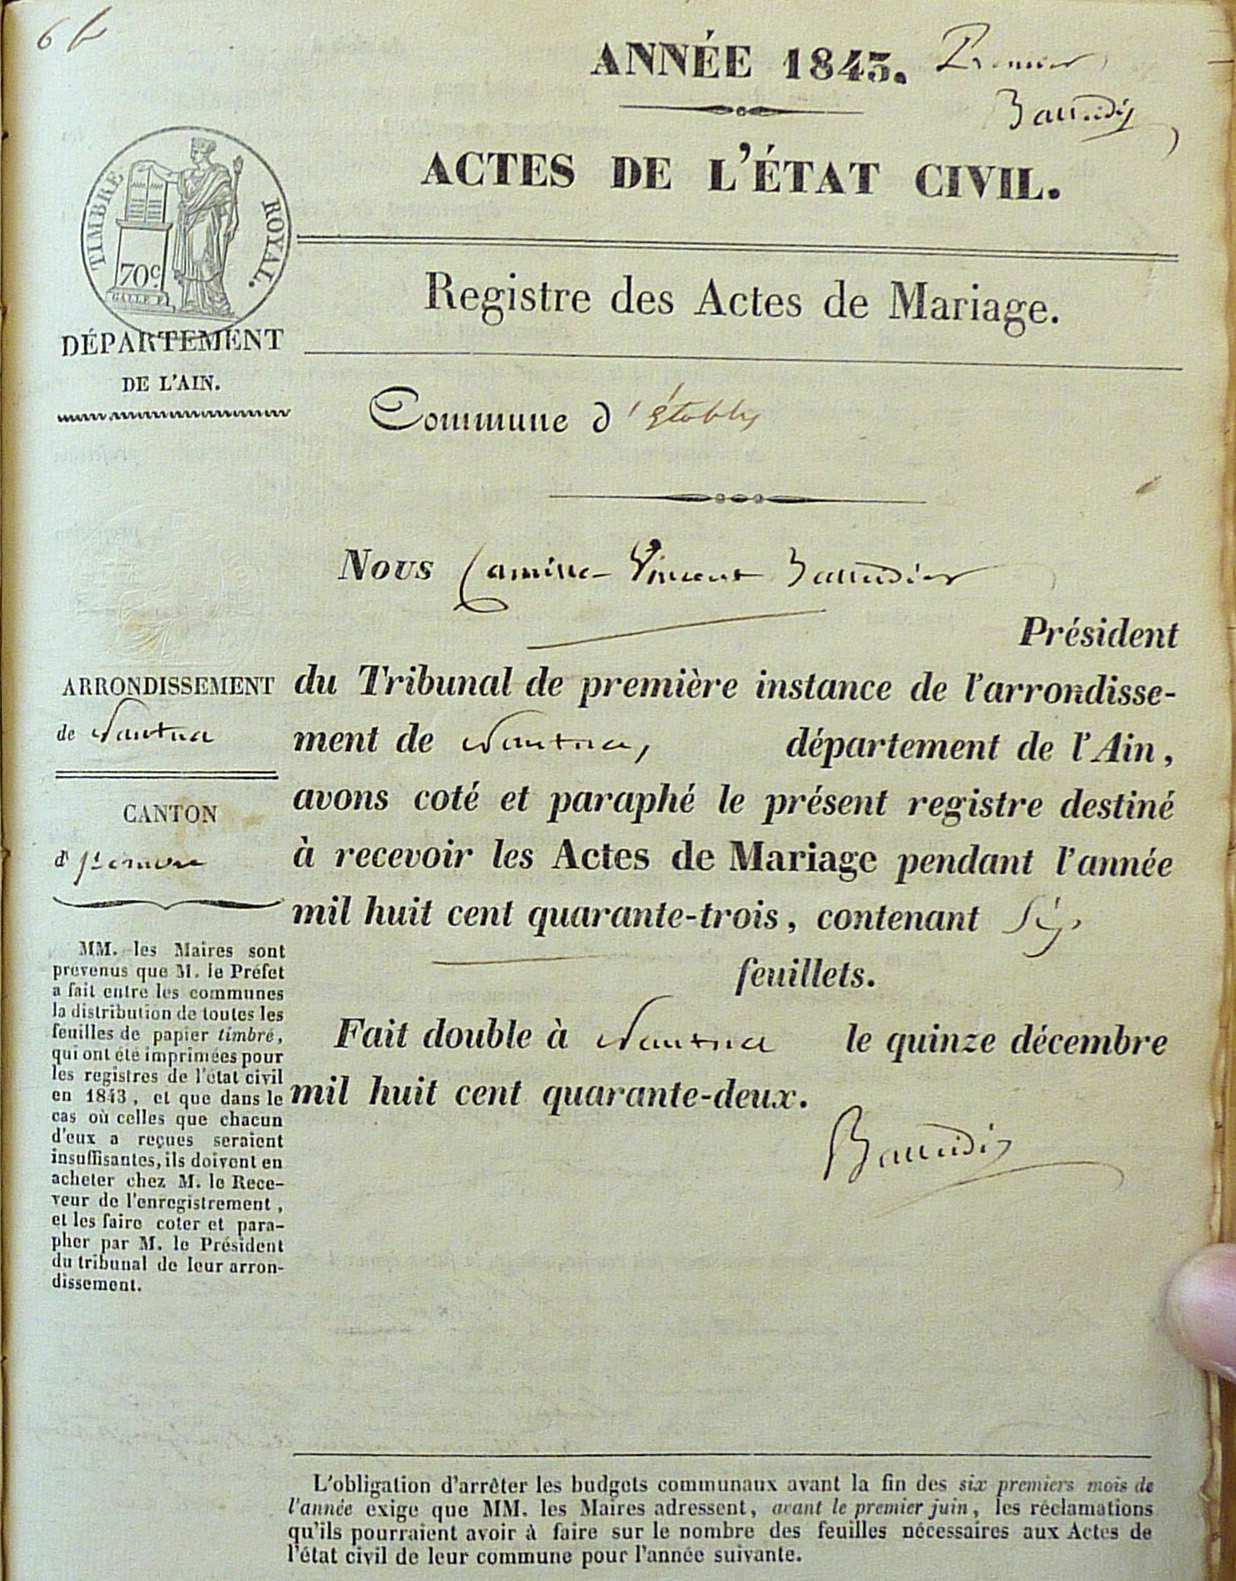 ANNÉE 1843. Premier
Baudin
TIMBRE ROYAL.
70c
ACTES DE L'ÉTAT CIVIL.
Registre des Actes de Mariage.
DÉPARTEMENT
DE L'AIN.
Commune d'Étables
Nous Camille Vincent
Président
du Tribunal de première instance de l'arrondisse-
ment de Nantua, département de l'Ain,
avons coté et paraphé le présent registre destiné
à recevoir les Actes de Mariage pendant l'année
mil huit cent quarante-trois, contenant Six
feuillets.
Fait double à Nantua le quinze décembre
mil huit cent quarante-deux.
ARRONDISSEMENT
de Nantua
CANTON
d'
MM. les Maires sont
prévenus que M. le Préfet
a fait entre les communes
la distribution de toutes les
feuilles de papier timbré,
qui ont été imprimées pour
les registres de l'état civil
en 1843, et que dans le
cas où celles que chacun
d'eux a reçues seraient
insuffisantes, ils doivent en
acheter chez M. le Rece-
veur de l'enregistrement,
et les faire coter et para-
pher par M. le Président
du tribunal de leur arron-
dissement.
L'obligation d'arrêter les budgets communaux avant la fin des six premiers mois de
l'année exige que MM. les Maires adressent, avant le premier juin, les réclamations
qu'ils pourraient avoir à faire sur le nombre des feuilles nécessaires aux Actes de
l'état civil de leur commune pour l'année suivante.